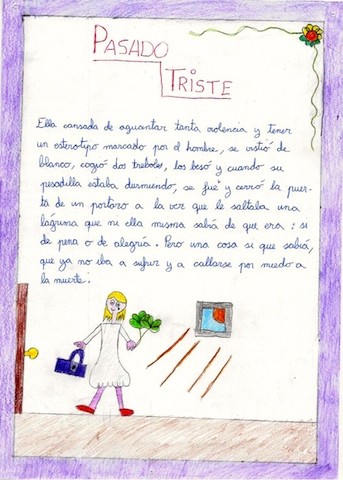 PASADO
TRISTE
Ella cansada de aguantar tanta violencia y tener
un esterotipo marcado por el hombre, se vistió de
blanco, cogió dos treboles, los besó y cuando su
pesadilla estaba durmiendo, se fué y cerró la puer-
ta de un portazo a la vez que le saltaba una
lágrima que ni ella misma sabía de que era: si
de pena o de alegría. Pero una cosa si que sabía,
que ya no iba a sufrir y a callarse por miedo a
la muerte.